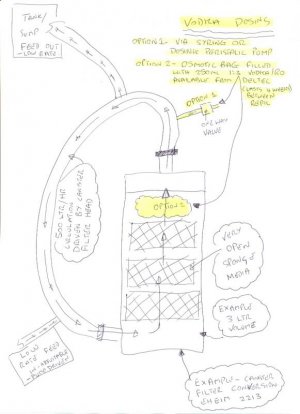 TANK/
SUMP
FEED OUT
-LOW RATE
VODKA DOSING
OPTION 1- VIA SYRING OR
DOSING PERISTALIC PUMP
OPTION 2- OSMOTIC BAG FILLED
WITH 250ML 1:1 VODKA/RO
AVAILABLE FROM DELTEC
(LASTS 4 WEEKS)
BETWEEN
REFIL
OPTION 1
ONE WAY
VALVE
500 LTR/HR
CIRCULATION
DRIVEN BY CANISTER
FILTER HEAD
OPTION 2
VERY
OPEN
SPONGE
MEDIA
EXAMPLE
3 LTR
VOLUME
LOW
RATE FEED
IN-ADJUSTABLE
-PUMP DRIVEN
EXAMPLE- CANISTER
FILTER CONVERSION
EHEIM 2213